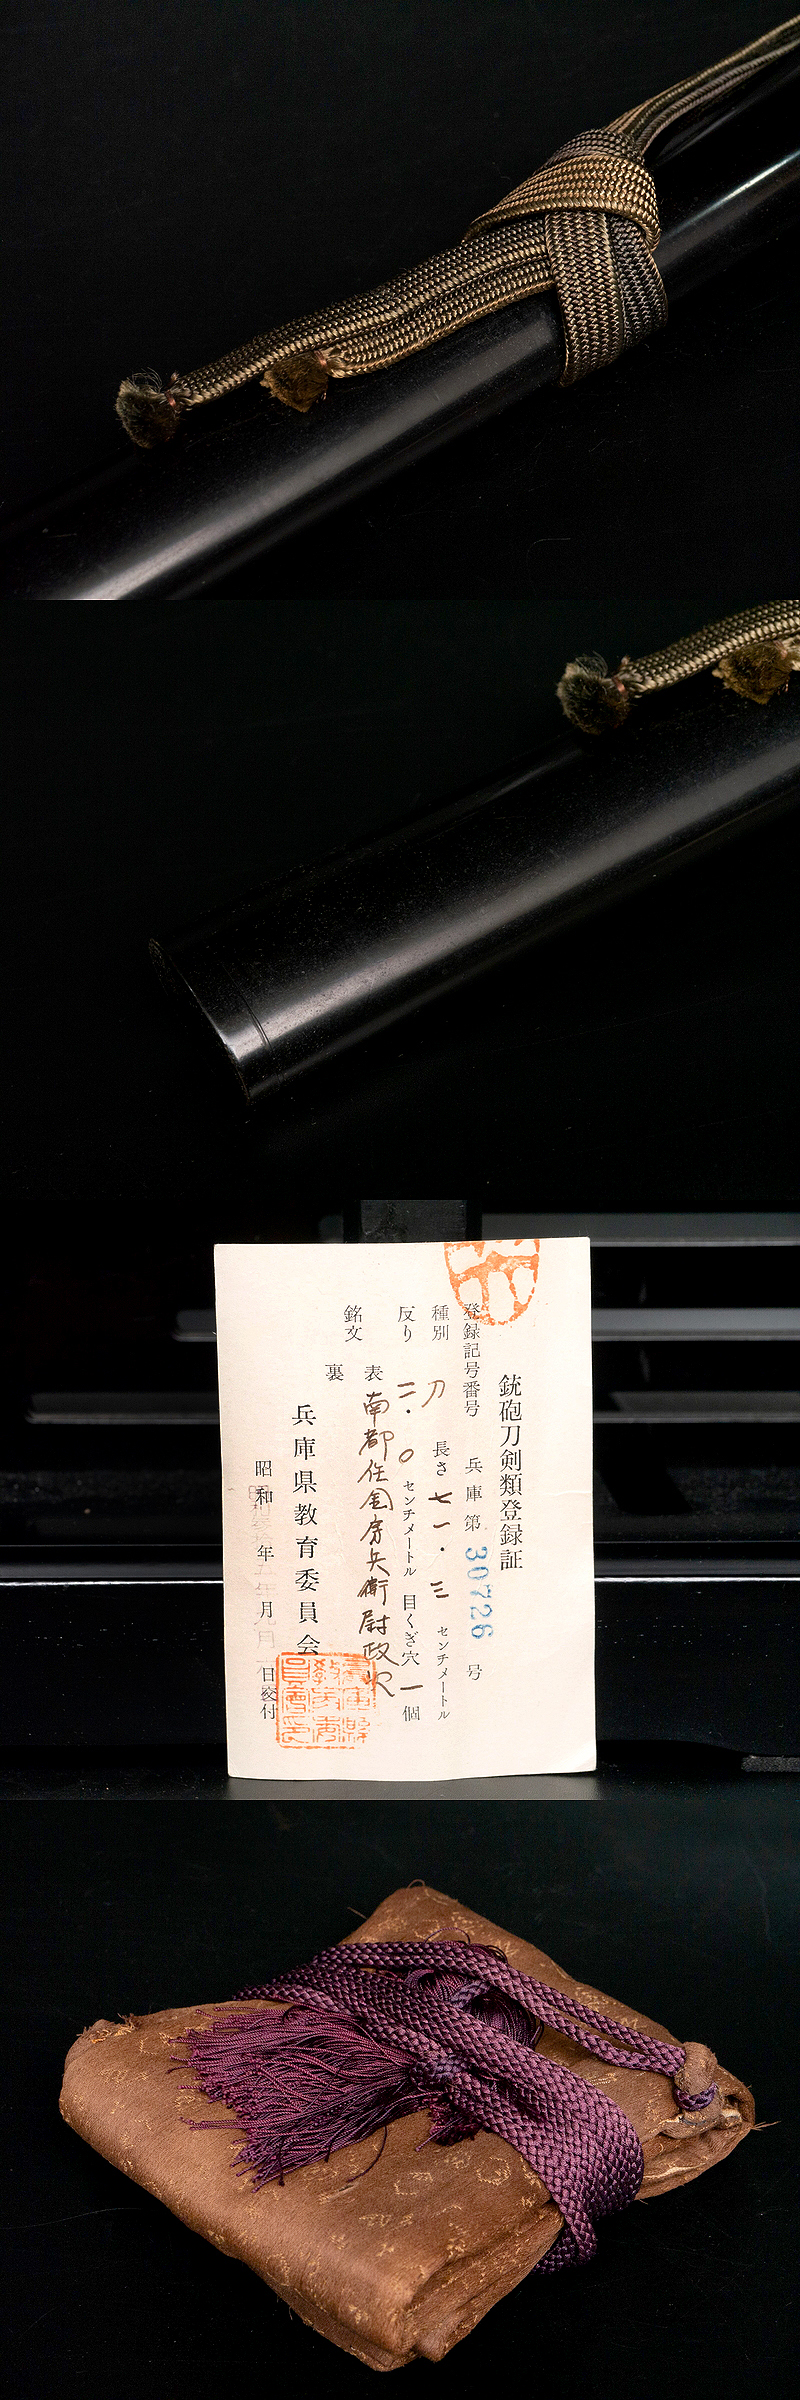 銃砲刀剣類登録証
登録記号番号 兵庫第 30726 号
種別 刀 長さ 七一・三 センチメートル
反り 二・〇 センチメートル 目くぎ穴 一 個
銘文 表 南都住金房兵衛尉政次
裏
兵庫県教育委員会
昭和 年 月 日交付